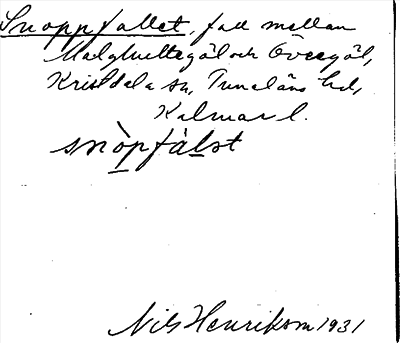 Snoppfallet, fall mellan
Madghultegöl och Övregöl,
Kristdala sn, Tunaläns hd,
Kalmar l.
snòpfàlst
Nils Henrikson 1931